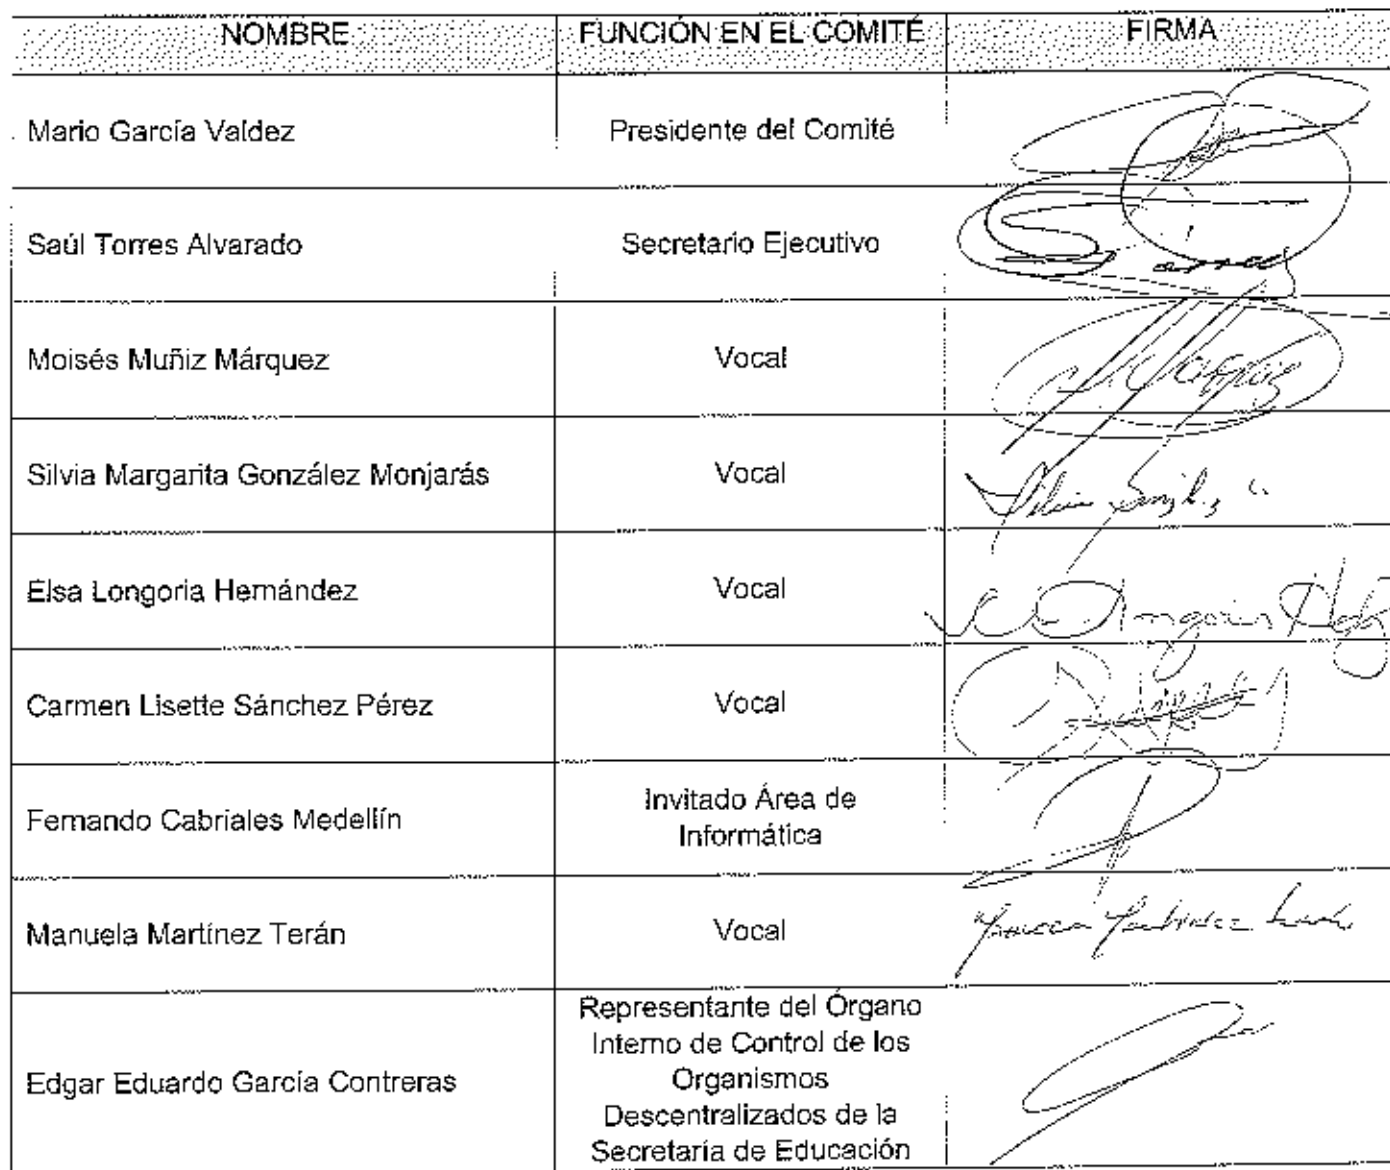 NOMBRE FUNCIÓN EN EL COMITÉ FIRMA
Mario García Valdez Presidente del Comité
Saúl Torres Alvarado Secretario Ejecutivo
Moisés Muñiz Márquez Vocal
Silvia Margarita González Monjarás Vocal
Elsa Longoria Hernández Vocal
Carmen Lisette Sánchez Pérez Vocal
Fernando Cabriales Medellín Invitado Área de
Informática
Manuela Martínez Terán Vocal
Edgar Eduardo García Contreras Representante del Órgano
Interno de Control de los
Organismos
Descentralizados de la
Secretaría de Educación